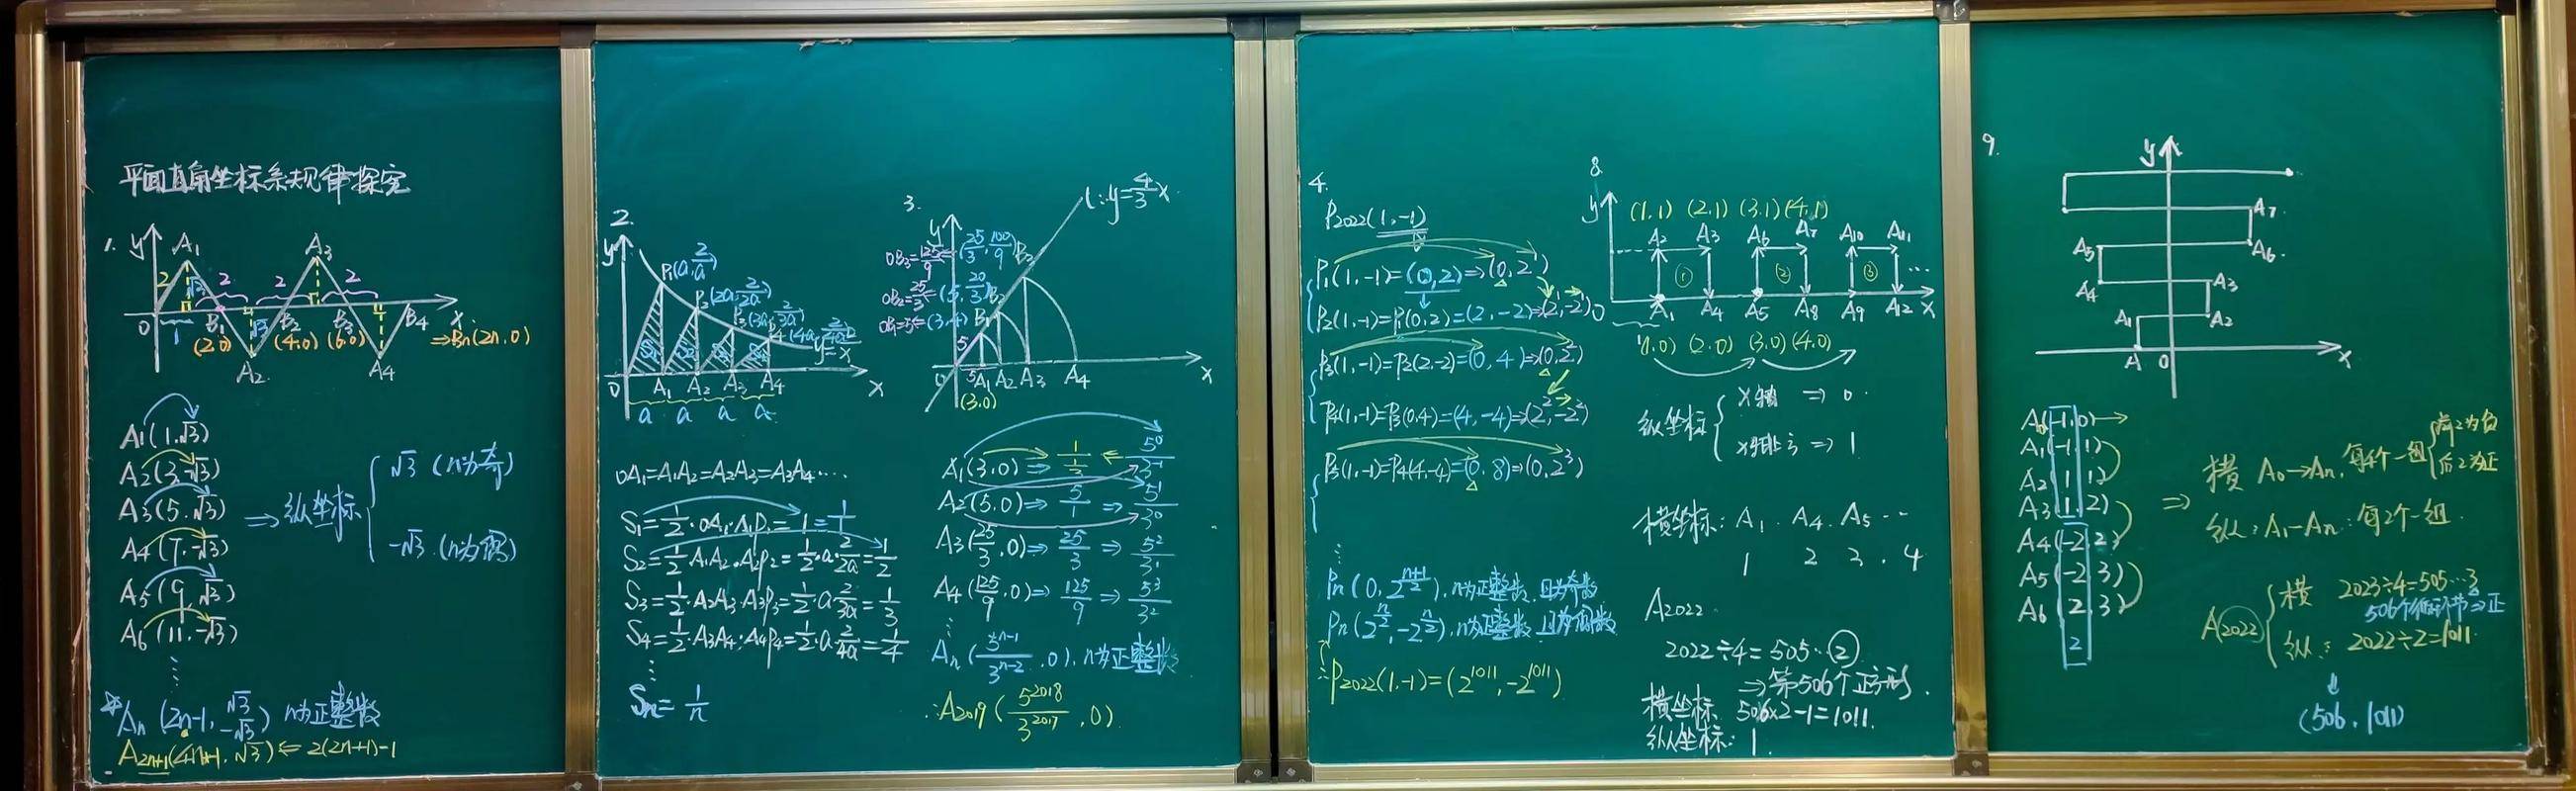 平面直角坐标系规律探究
1.
y
A₁
A₃
2
√3
2
2
2
O
1
B₁
√3
B₂
B₃
B₄
x
(2,0)
(4,0)
(6,0)
⇒Bn(2n,0)
A₂
A₄
A₁(1,√3)
A₂(3,-√3)
A₃(5,√3)
A₄(7,-√3)
A₅(9,√3)
A₆(11,-√3)
⇒纵坐标
√3 (n为奇)
-√3 (n为偶)
An (2n-1, √3 -√3) n为正整数
A2n+1(4n+1,√3)⇐2(2n+1)-1
2.
y
P₁(a,2/a)
P₂(2a,2/2a)
P₃(3a,2/3a)
O
A₁ A₂ A₃ A₄
x
a a a a
OA₁=A₁A₂=A₂A₃=A₃A₄····
S₁=1/2·OA₁·A₁P₁=1=1/1
S₂=1/2·A₁A₂·A₂P₂=1/2·a·2/2a=1/2
S₃=1/2·A₂A₃·A₃P₃=1/2·a·2/3a=1/3
S₄=1/2·A₃A₄·A₄P₄=1/2·a·2/4a=1/4
Sn=1/n
3.
l:y=4/3x
y
OB₃=125/9⇐(25/3,100/9)B₃
OB₂=25/3⇐(5,20/3)B₂
OB₁=5⇐(3,4)B₁
5
O
A₁ A₂ A₃ A₄
x
(3,0)
A₁(3,0)⇒1/(1/3)⇐5⁰/3⁻¹
A₂(5,0)⇒5/1⇒5¹/3⁰
A₃(25/3,0)⇒25/3⇒5²/3¹
A₄(125/9,0)⇒125/9⇒5³/3²
An(5ⁿ⁻¹/3ⁿ⁻²,0),n为正整数
∴A2019(5²⁰¹⁸/3²⁰¹⁷,0)
4.
P2022(1,-1)
P₁(1,-1)=(0,2)⇒(0,2¹)
P₂(1,-1)=P₁(0,2)=(2,-2)⇒(2¹,-2¹)
P₃(1,-1)=P₂(2,-2)=(0,4)⇒(0,2²)
P₄(1,-1)=P₃(0,4)=(4,-4)⇒(2²,-2²)
P₅(1,-1)=P₄(4,-4)=(0,8)⇒(0,2³)
Pn(0,2^((n+1)/2)),n为正整数,且为奇数
Pn(2^(n/2),-2^(n/2)),n为正整数 且为偶数
∴P2022(1,-1)=(2¹⁰¹¹,-2¹⁰¹¹)
8.
y
(1,1) (2,1) (3,1) (4,1)
A₂ A₃ A₆ A₇ A₁₀ A₁₁
① ② ③ ···
O
A₁ A₄ A₅ A₈ A₉ A₁₂ x
(1,0) (2,0) (3,0) (4,0)
纵坐标
x轴⇒0
x轴上方⇒1
横坐标:A₁ A₄ A₅ ···
1 2 3 . 4
A2022
2022÷4=505··②
⇒第506个正方形.
横坐标 506×2-1=1011.
纵坐标:1.
9.
y
A₇
A₅
A₆
A₄
A₃
A₁
A₂
A O
x
A₀(-1,0)
A₁(-1,1)
A₂(1,1)
A₃(1,2)
A₄(-2,2)
A₅(-2,3)
A₆(2,3)
2
⇒
横 A₀→An,每4个一组
前2为负
后2为正
纵:A₁-An:每2个一组.
A2022
横 2023÷4=505···3
506个循环节⇒正
纵: 2022÷2=1011
(506,1011)